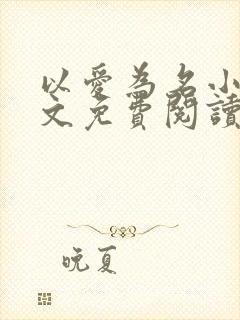 以愛為名小
文免費閱讀
晚夏